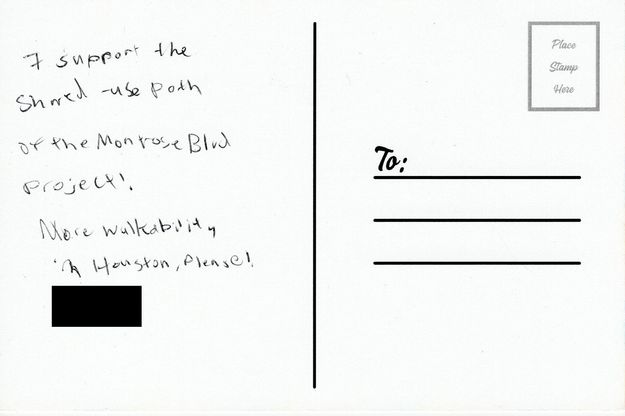 I support the
Shared-use path
of the Montrose Blvd
project!
More walkability
in Houston, Please!
Place
Stamp
Here
To: